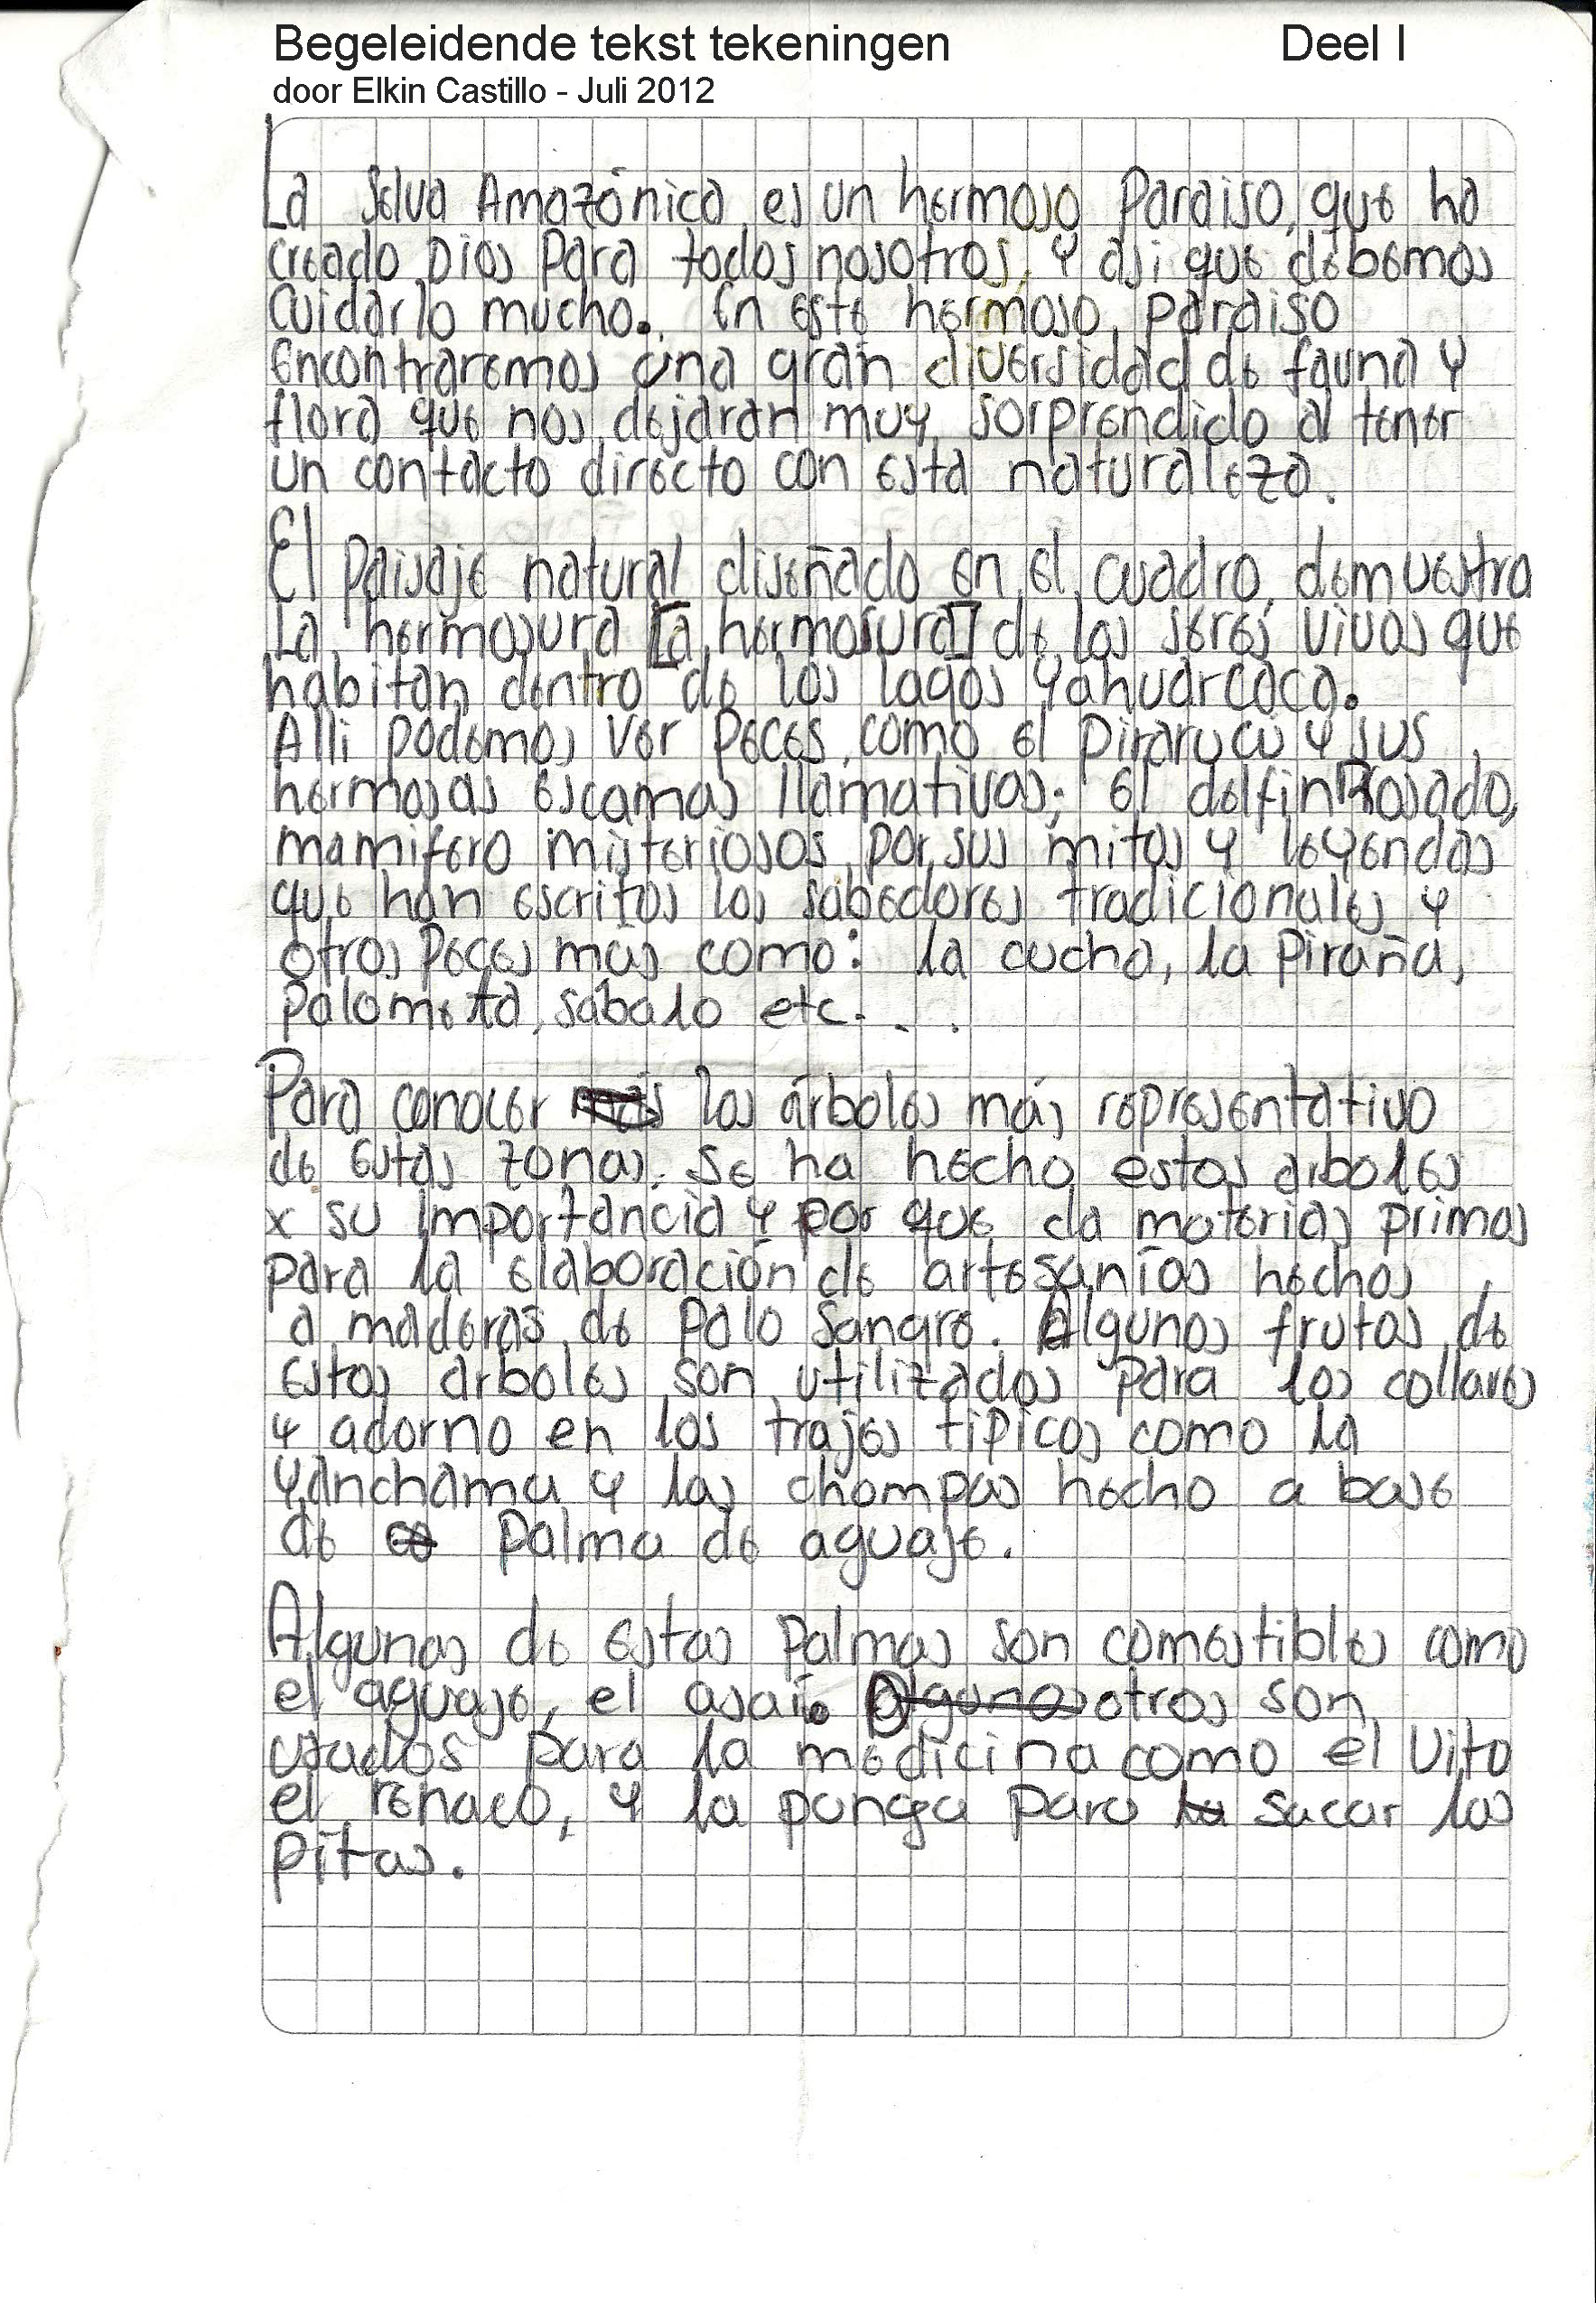 Begeleidende tekst tekeningen Deel I
door Elkin Castillo - Juli 2012
La Selva Amazónica es un hermoso Paraiso, que ha
creado Dios Para todos nosotros, y asi que debemos
cuidarlo mucho. En este hermoso paraiso
encontraremos una gran diversidad de fauna y
flora que nos dejaran muy sorprendido al tener
un contacto directo con esta naturaleza.
El Paisaje natural diseñado en el cuadro, demuestra
La hermosura [la hermosura] de los seres vivos que
habitan dentro de los lagos Yahuarcaca.
Alli podemos ver Peces como el Pirarucú y sus
hermosas escamas llamativas; el delfin Rosado,
mamifero misteriosos por sus mitos y leyendas
que han escritos los sabedores tradicionales y
otros Peces mas como: la cucha, la Piraña,
Palometa, sábalo etc. . .
Para conocer más los árboles más representativo
de estas zonas. Se ha hecho estos arboles
x su importancia y por que da materias primas
para la elaboración de artesanías hechos
a maderas de Palo Sangre. Algunos frutos de
estos arboles son utilizados para los collares
y adorno en los trajes tipicos como la
Yanchama y las chompas hecho a base
de Palma de aguaje.
Algunas de estas Palmas son comestibles como
el aguaje, el asaí. Algunas otros son
usados para la medicina como el Vito
el renaco, y la punga para la sacar las
pitas.